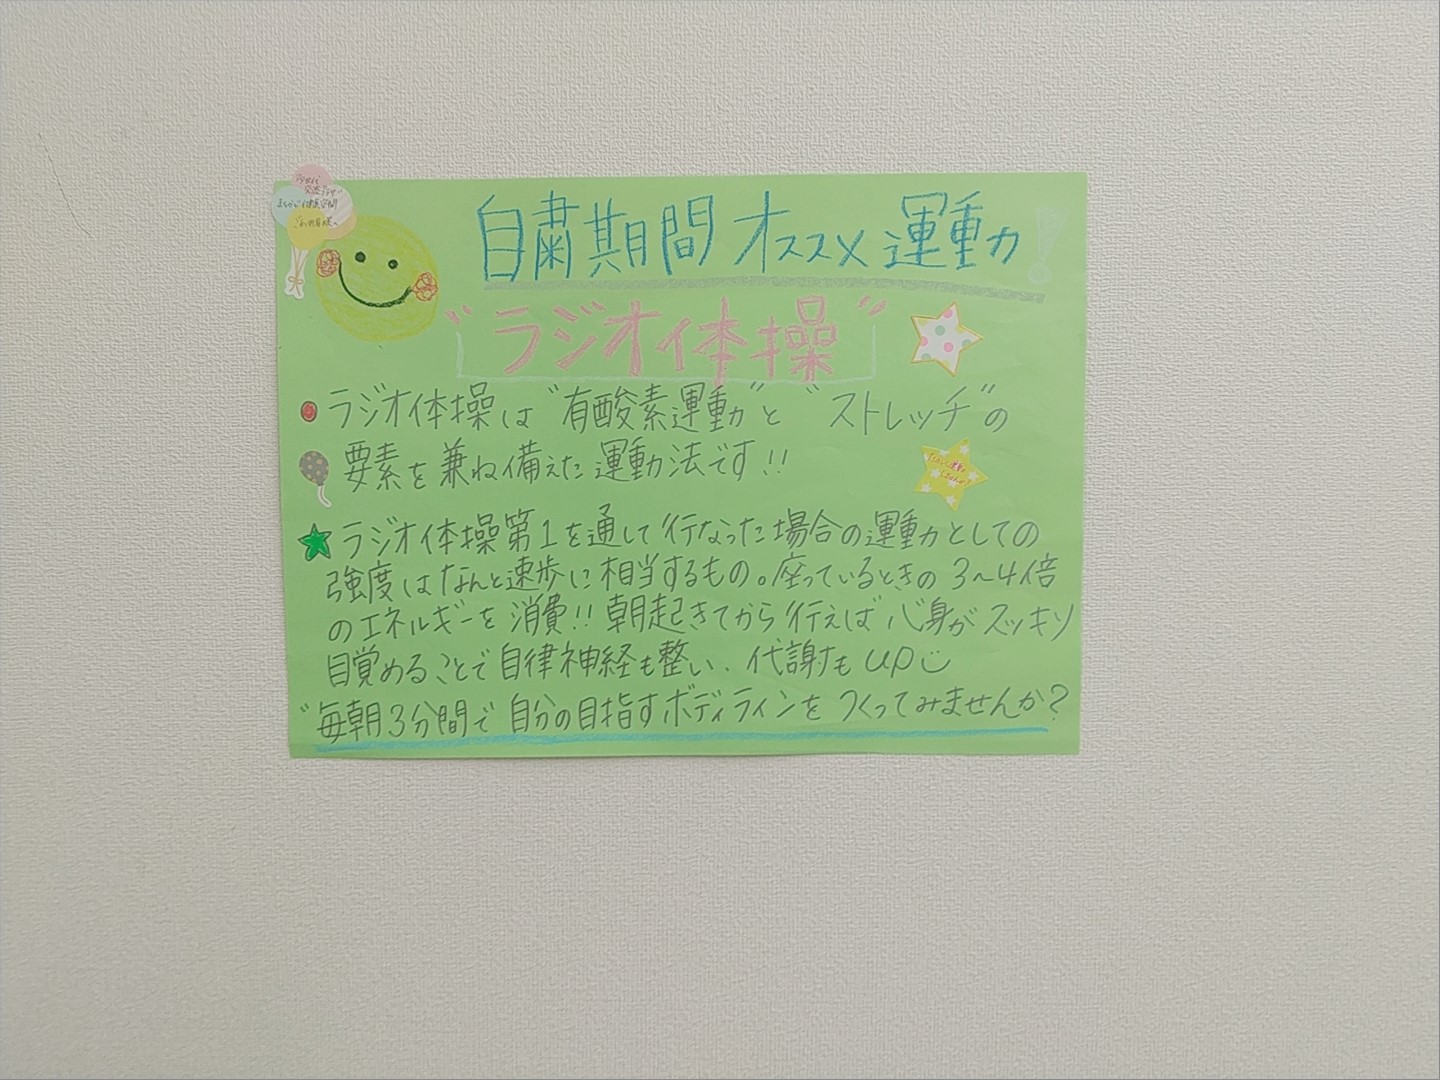 自粛期間オススメ運動!
"ラジオ体操"
ラジオ体操は"有酸素運動"と"ストレッチ"の
要素を兼ね備えた運動法です!!
ラジオ体操第1を通して行なった場合の運動としての
強度はなんと速歩に相当するもの。座っているときの3~4倍
のエネルギーを消費!!朝起きてから行えば心身がスッキリ
目覚めることで自律神経も整い、代謝もup
"毎朝3分間で自分の目指すボディラインをつくってみませんか?